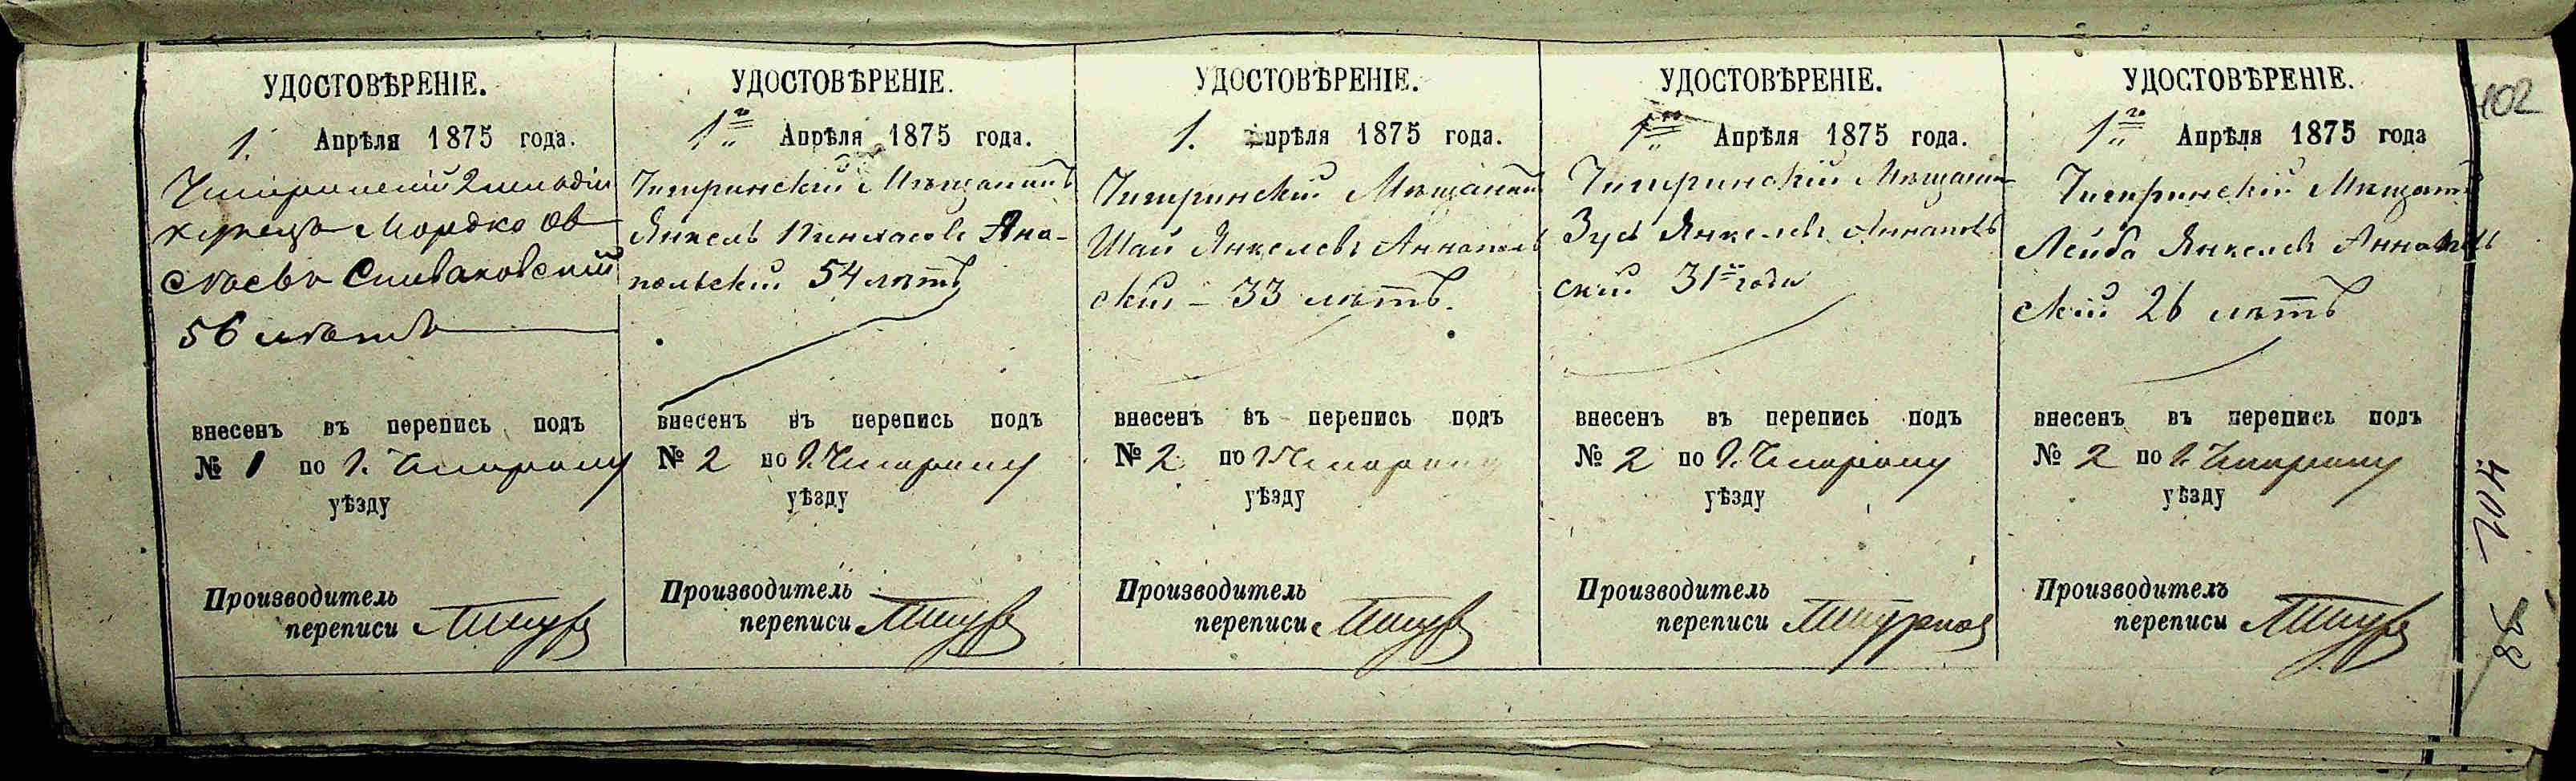 УДОСТОВѢРЕНІЕ.
1. Апрѣля 1875 года.
Чигиринскій 2 гильдіи
купецъ Мордко Ов
сѣевъ Сливаковский
56 лѣтъ
внесенъ въ перепись подъ
№ 1 по г. Чигирину
уѣзду
Производитель
переписи
УДОСТОВѢРЕНІЕ.
1го Апрѣля 1875 года.
Чигиринскій Мѣщанинъ
Янкель Пинхасовъ Ана-
польскій 54 лѣтъ
внесенъ въ перепись подъ
№ 2 по г. Чигирину
уѣзду
Производитель
переписи
УДОСТОВѢРЕНІЕ.
1. Апрѣля 1875 года.
Чигиринскій Мѣщанинъ
Шая Янкелевъ Аннополь
скій – 33 лѣтъ.
внесенъ въ перепись подъ
№ 2 по г. Чигирину
уѣзду
Производитель
переписи
УДОСТОВѢРЕНІЕ.
1го Апрѣля 1875 года.
Чигиринскій Мѣщанин
Зусь Янкелевъ Аннополь
скій 31го года
внесенъ въ перепись подъ
№ 2 по г. Чигирину
уѣзду
Производитель
переписи
УДОСТОВѢРЕНІЕ.
1го Апрѣля 1875 года
Чигиринскій Мѣщанин
Лейба Янкелевъ Аннополь
скій 26 лѣтъ
внесенъ въ перепись подъ
№ 2 по г. Чигирину
уѣзду
Производитель
переписи
102
104
98